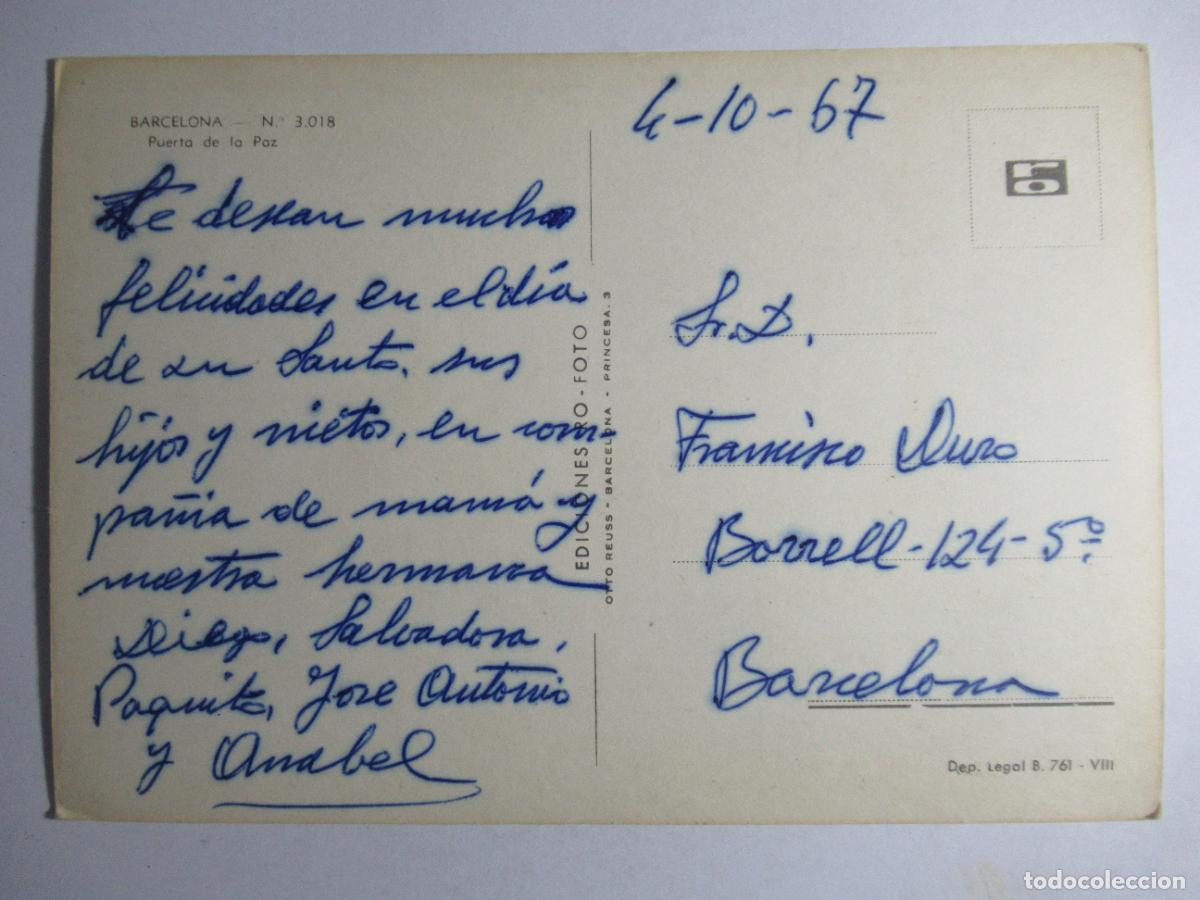 BARCELONA — N.º 3.018
Puerta de la Paz
Le desean muchas
felicidades en el día
de su Santo, sus
hijos y nietos, en com-
pañia de mamá y
nuestra hermana
Diego, Salvadora,
Paquito, Jose Antonio
y Anabel
EDICIONES RO-FOTO
OTTO REUSS - BARCELONA - PRINCESA. 3
4-10-67
ro
Sr. D.
Francisco Duro
Borrell-124-5º
Barcelona
Dep. Legal B. 761 - VIII
todocoleccion